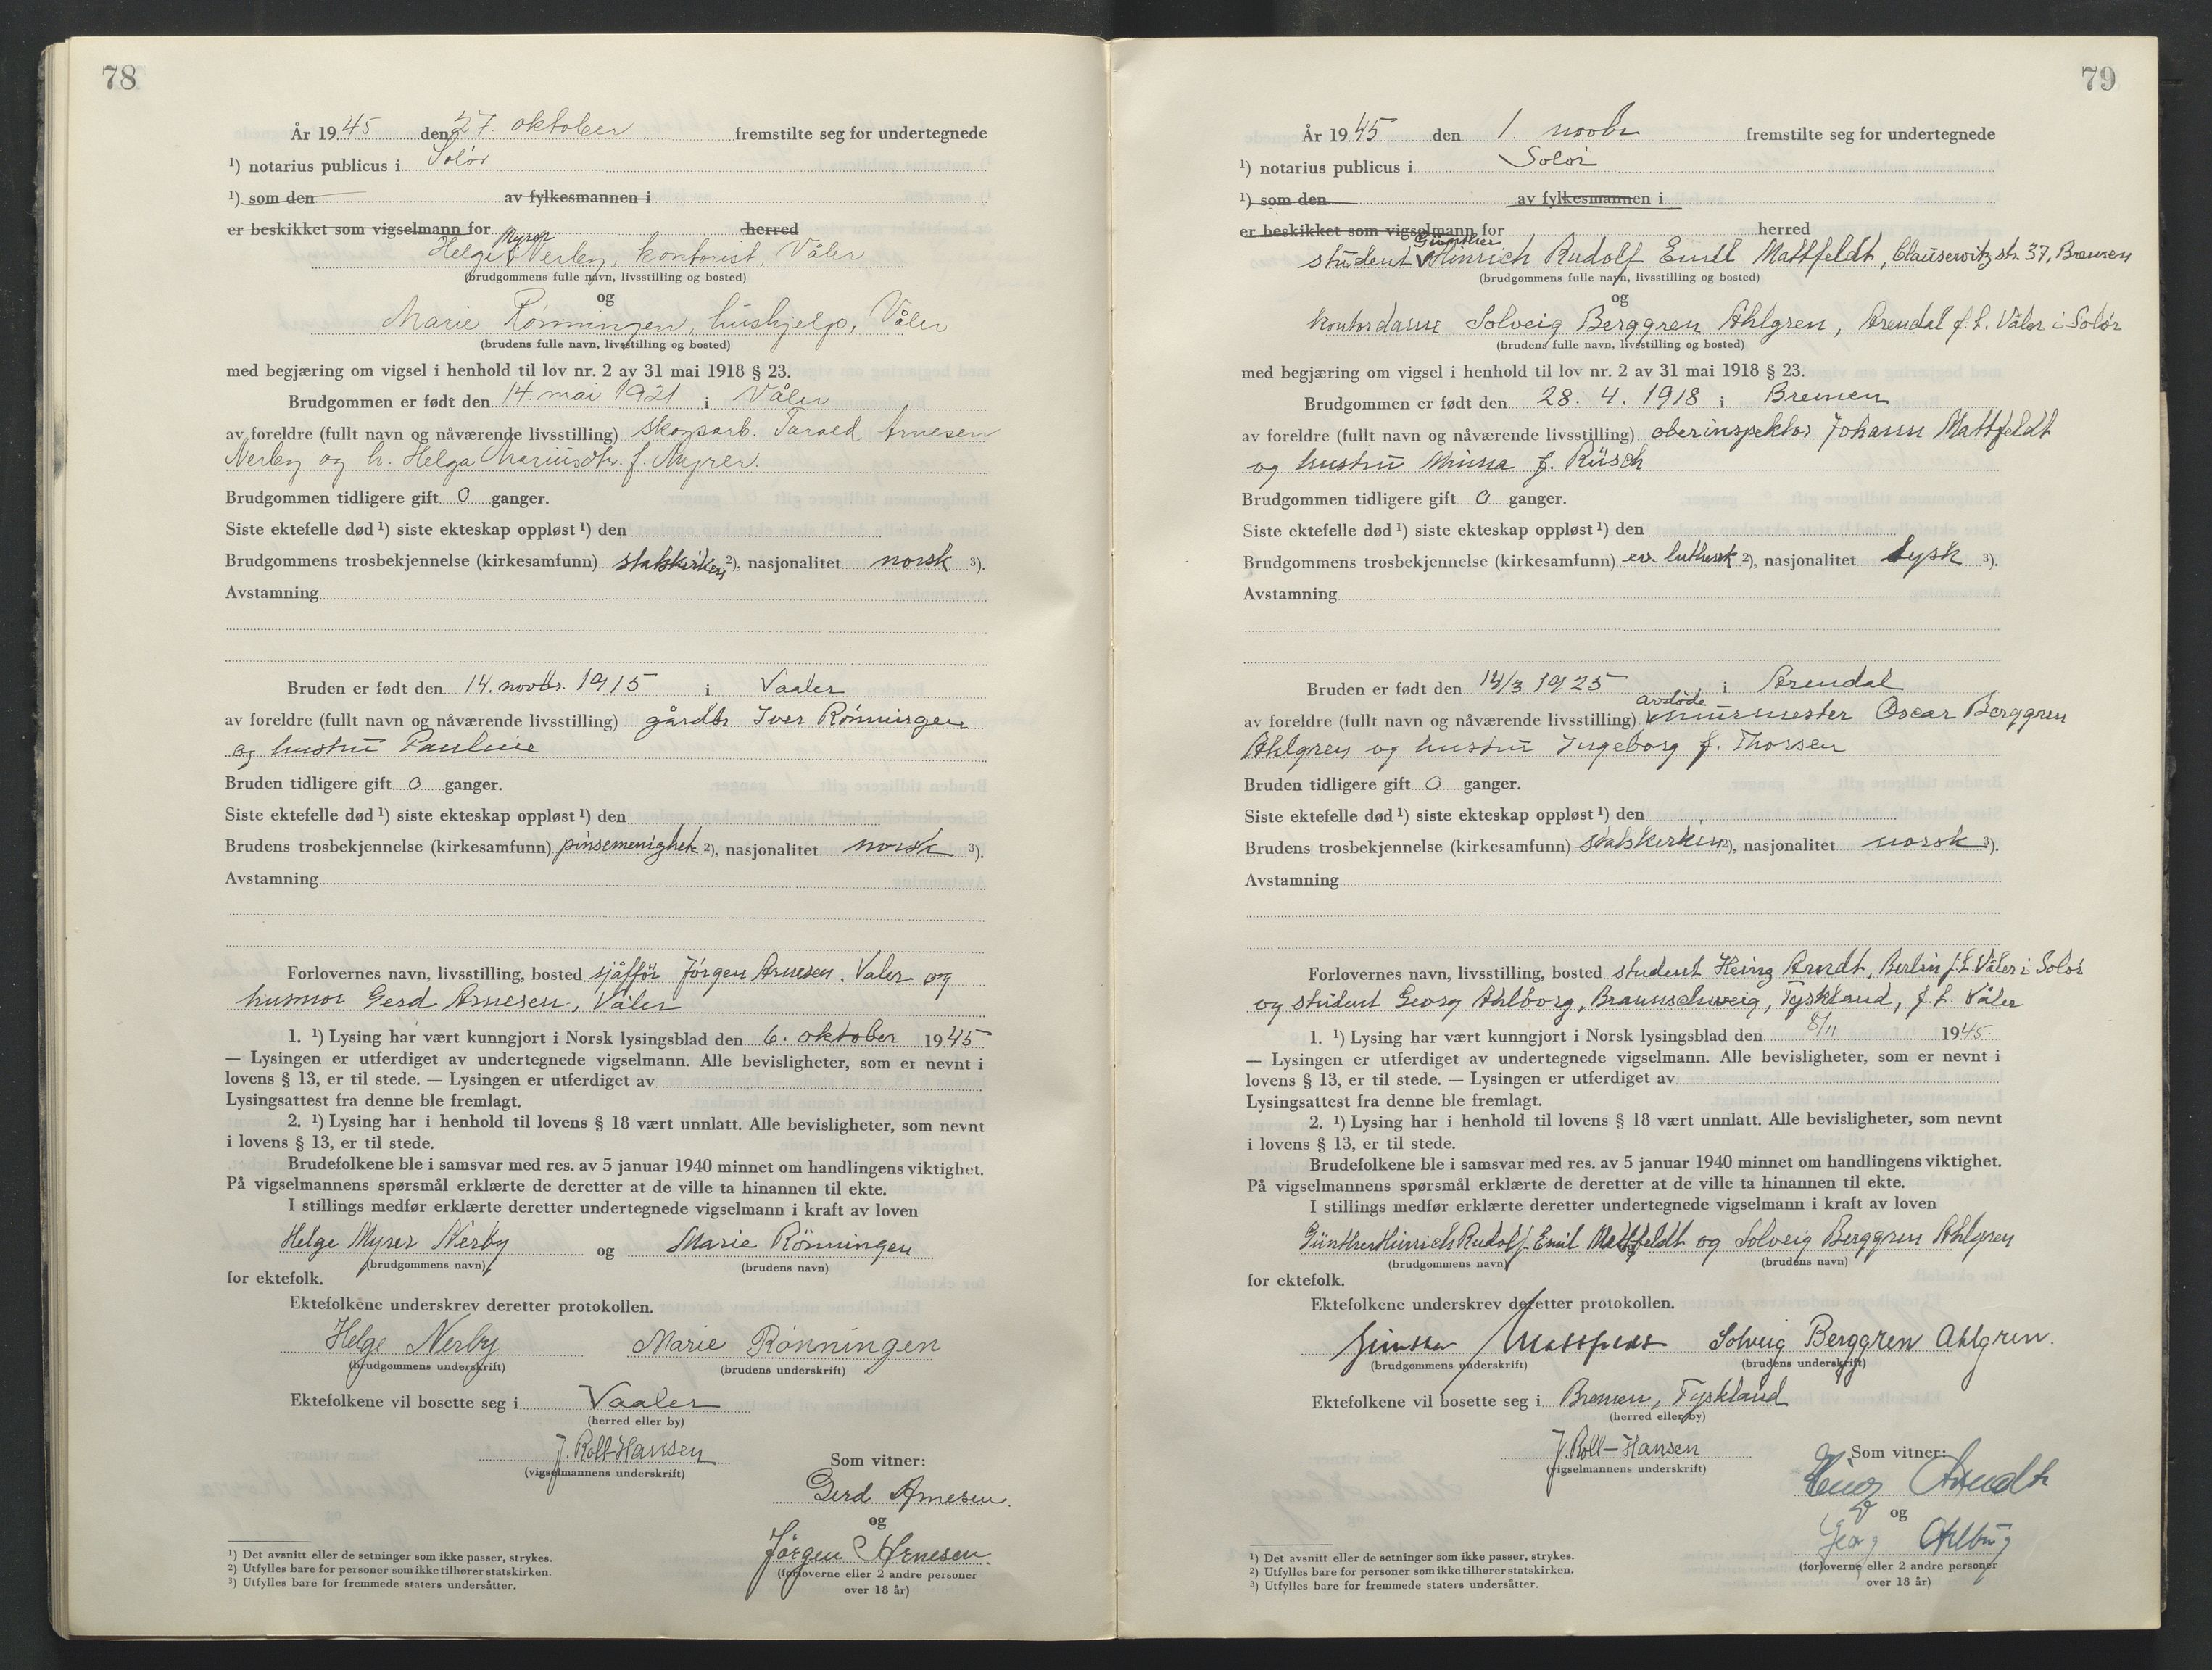 78
År 1945 den 27. oktober fremstilte seg for undertegnede
¹) notarius publicus i Solør
¹) som den av fylkesmannen i
er beskikket som vigselmann for herred
Myrer
Helge Nerby, kontorist, Våler
(brudgommens fulle navn, livsstilling og bosted)
og
Marie Rønningen, hushjelp, Våler
(brudens fulle navn, livsstilling og bosted)
med begjæring om vigsel i henhold til lov nr. 2 av 31 mai 1918 § 23.
Brudgommen er født den 14. mai 1921 i Våler
av foreldre (fullt navn og nåværende livsstilling) skogsarb. Tarald Arnesen
Nerby og h. Helga Mariusdtr. f. Myrer.
Brudgommen tidligere gift 0 ganger.
Siste ektefelle død ¹) siste ekteskap oppløst ¹) den
Brudgommens trosbekjennelse (kirkesamfunn) statskirken ²), nasjonalitet norsk ³).
Avstamning
Bruden er født den 14. novbr. 1915 i Vaaler
av foreldre (fullt navn og nåværende livsstilling) gårdbr Iver Rønningen
og hustru Pauline
Bruden tidligere gift 0 ganger.
Siste ektefelle død ¹) siste ekteskap oppløst ¹) den
Brudens trosbekjennelse (kirkesamfunn) pinsemenighet ²), nasjonalitet norsk ³).
Avstamning
Forlovernes navn, livsstilling, bosted sjåffør Jørgen Arnesen. Valer og
husmor Gerd Arnesen, Våler
1. ¹) Lysing har vært kunngjort i Norsk lysingsblad den 6. oktober 1945
— Lysingen er utferdiget av undertegnede vigselmann. Alle bevisligheter, som er nevnt i
lovens § 13, er til stede. — Lysingen er utferdiget av
Lysingsattest fra denne ble fremlagt.
2. ¹) Lysing har i henhold til lovens § 18 vært unnlatt. Alle bevisligheter, som nevnt
i lovens § 13, er til stede.
Brudefolkene ble i samsvar med res. av 5 januar 1940 minnet om handlingens viktighet.
På vigselmannens spørsmål erklærte de deretter at de ville ta hinannen til ekte.
I stillings medfør erklærte deretter undertegnede vigselmann i kraft av loven
Helge Myrer Nerby og Marie Rønningen
(brudgommens navn) (brudens navn)
for ektefolk.
Ektefolkene underskrev deretter protokollen.
Helge Nerby Marie Rønningen
(brudgommens underskrift) (brudens underskrift)
Ektefolkene vil bosette seg i Vaaler
(herred eller by)
J. Roll-Hansen
(vigselmannens underskrift)
Som vitner:
Gerd Arnesen.
og
Jørgen Arnesen.
(forloverne eller 2 andre personer
over 18 år)
¹) Det avsnitt eller de setninger som ikke passer, strykes.
²) Utfylles bare for personer som ikke tilhører statskirken.
³) Utfylles bare for fremmede staters undersåtter.
79
År 1945 den 1. novbr fremstilte seg for undertegnede
¹) notarius publicus i Solør
¹) som den av fylkesmannen i
er beskikket som vigselmann for herred
Günther
student Hinrich Rudolf Emil Mattfeldt, Clausewitz str. 37, Bremen
(brudgommens fulle navn, livsstilling og bosted)
og
kontordame Solveig Berggren Ahlgren, Arendal f.t. Våler i Solør
(brudens fulle navn, livsstilling og bosted)
med begjæring om vigsel i henhold til lov nr. 2 av 31 mai 1918 § 23.
Brudgommen er født den 28. 4. 1918 i Bremen
av foreldre (fullt navn og nåværende livsstilling) oberinspektør Johann Mattfeldt
og hustru Minna f. Rüsch
Brudgommen tidligere gift 0 ganger.
Siste ektefelle død ¹) siste ekteskap oppløst ¹) den
Brudgommens trosbekjennelse (kirkesamfunn) ev. luthersk ²), nasjonalitet tysk ³).
Avstamning
Bruden er født den 14/3 1925 i Arendal
avdøde
av foreldre (fullt navn og nåværende livsstilling) murmester Oscar Berggren
Ahlgren og hustru Ingeborg f. Thorsen
Bruden tidligere gift 0 ganger.
Siste ektefelle død ¹) siste ekteskap oppløst ¹) den
Brudens trosbekjennelse (kirkesamfunn) statskirken ²), nasjonalitet norsk ³).
Avstamning
Forlovernes navn, livsstilling, bosted student Heinz Arndt, Berlin f.t. Våler i Solør
og student Georg Ahlborg, Braunschweig, Tyskland, f.t. Våler
1. ¹) Lysing har vært kunngjort i Norsk lysingsblad den 8/11 1945
— Lysingen er utferdiget av undertegnede vigselmann. Alle bevisligheter, som er nevnt i
lovens § 13, er til stede. — Lysingen er utferdiget av
Lysingsattest fra denne ble fremlagt.
2. ¹) Lysing har i henhold til lovens § 18 vært unnlatt. Alle bevisligheter, som nevnt
i lovens § 13, er til stede.
Brudefolkene ble i samsvar med res. av 5 januar 1940 minnet om handlingens viktighet.
På vigselmannens spørsmål erklærte de deretter at de ville ta hinannen til ekte.
I stillings medfør erklærte deretter undertegnede vigselmann i kraft av loven
Günther Hinrich Rudolf Emil Mattfeldt og Solveig Berggren Ahlgren
(brudgommens navn) (brudens navn)
for ektefolk.
Ektefolkene underskrev deretter protokollen.
Günther Mattfeldt Solveig Berggren Ahlgren.
(brudgommens underskrift) (brudens underskrift)
Ektefolkene vil bosette seg i Bremen, Tyskland
(herred eller by)
J. Roll-Hansen
(vigselmannens underskrift)
Som vitner:
Heinz Arndt
og
Georg Ahlburg
(forloverne eller 2 andre personer
over 18 år)
¹) Det avsnitt eller de setninger som ikke passer, strykes.
²) Utfylles bare for personer som ikke tilhører statskirken.
³) Utfylles bare for fremmede staters undersåtter.